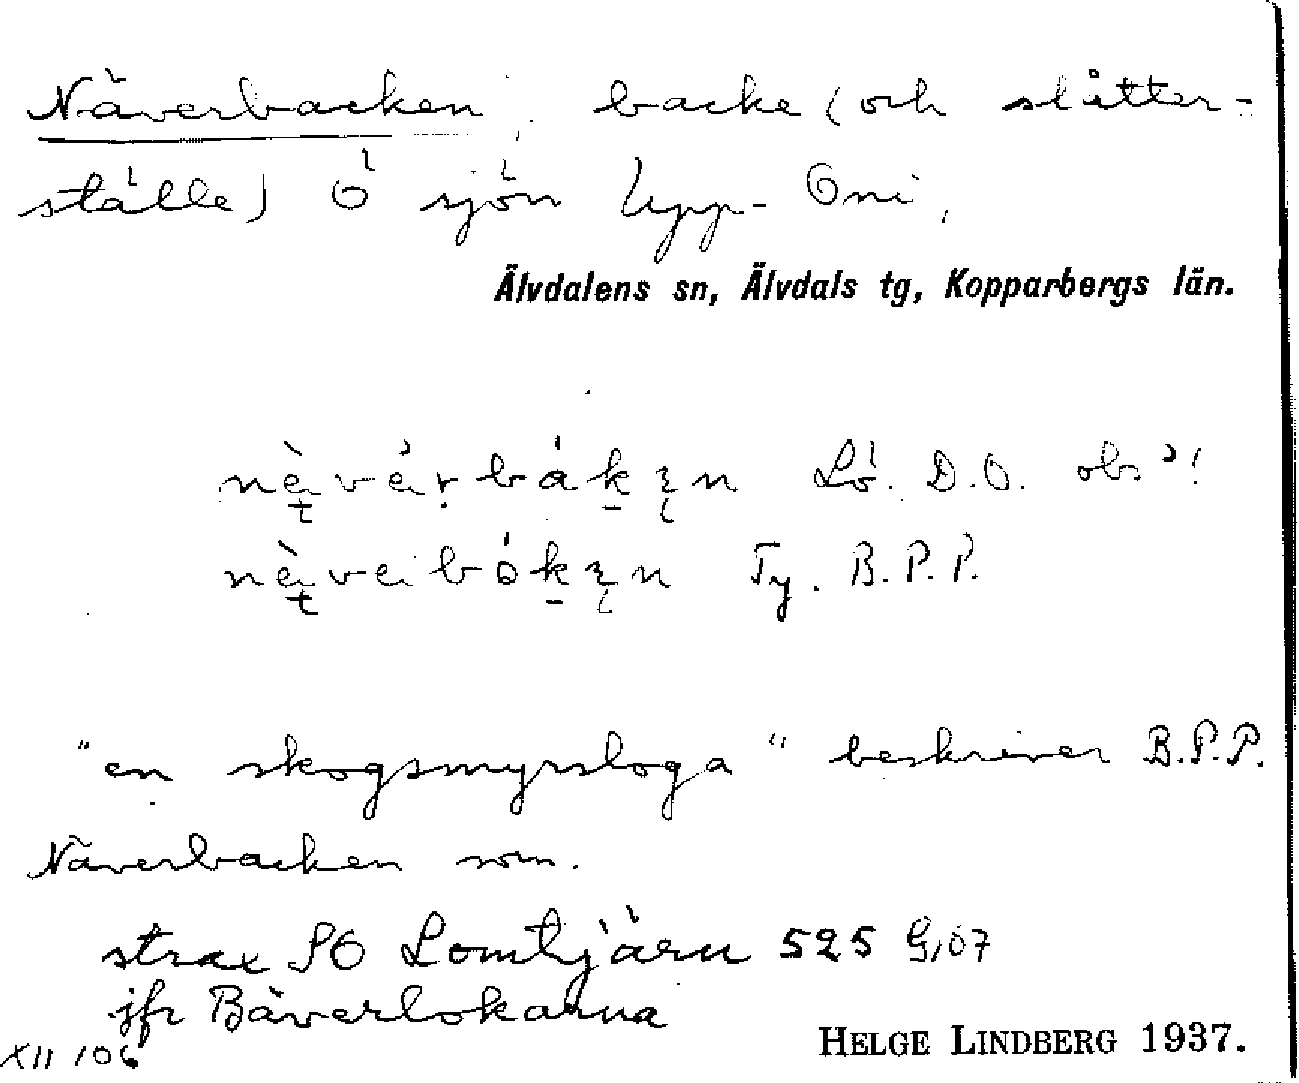 Näverbacken, backe (och slåtter-
ställe) Ö sjön Upp-Oni,
Älvdalens sn, Älvdals tg, Kopparbergs län.
Lö. D.O. obs!
Ty. B.P.P.
"en skogsmyrsloga" beskriver B.P.P.
Näverbacken som.
strax SO Lomtjärn 525 G,07
jfr Bäverlokarna
XII 106
HELGE LINDBERG 1937.